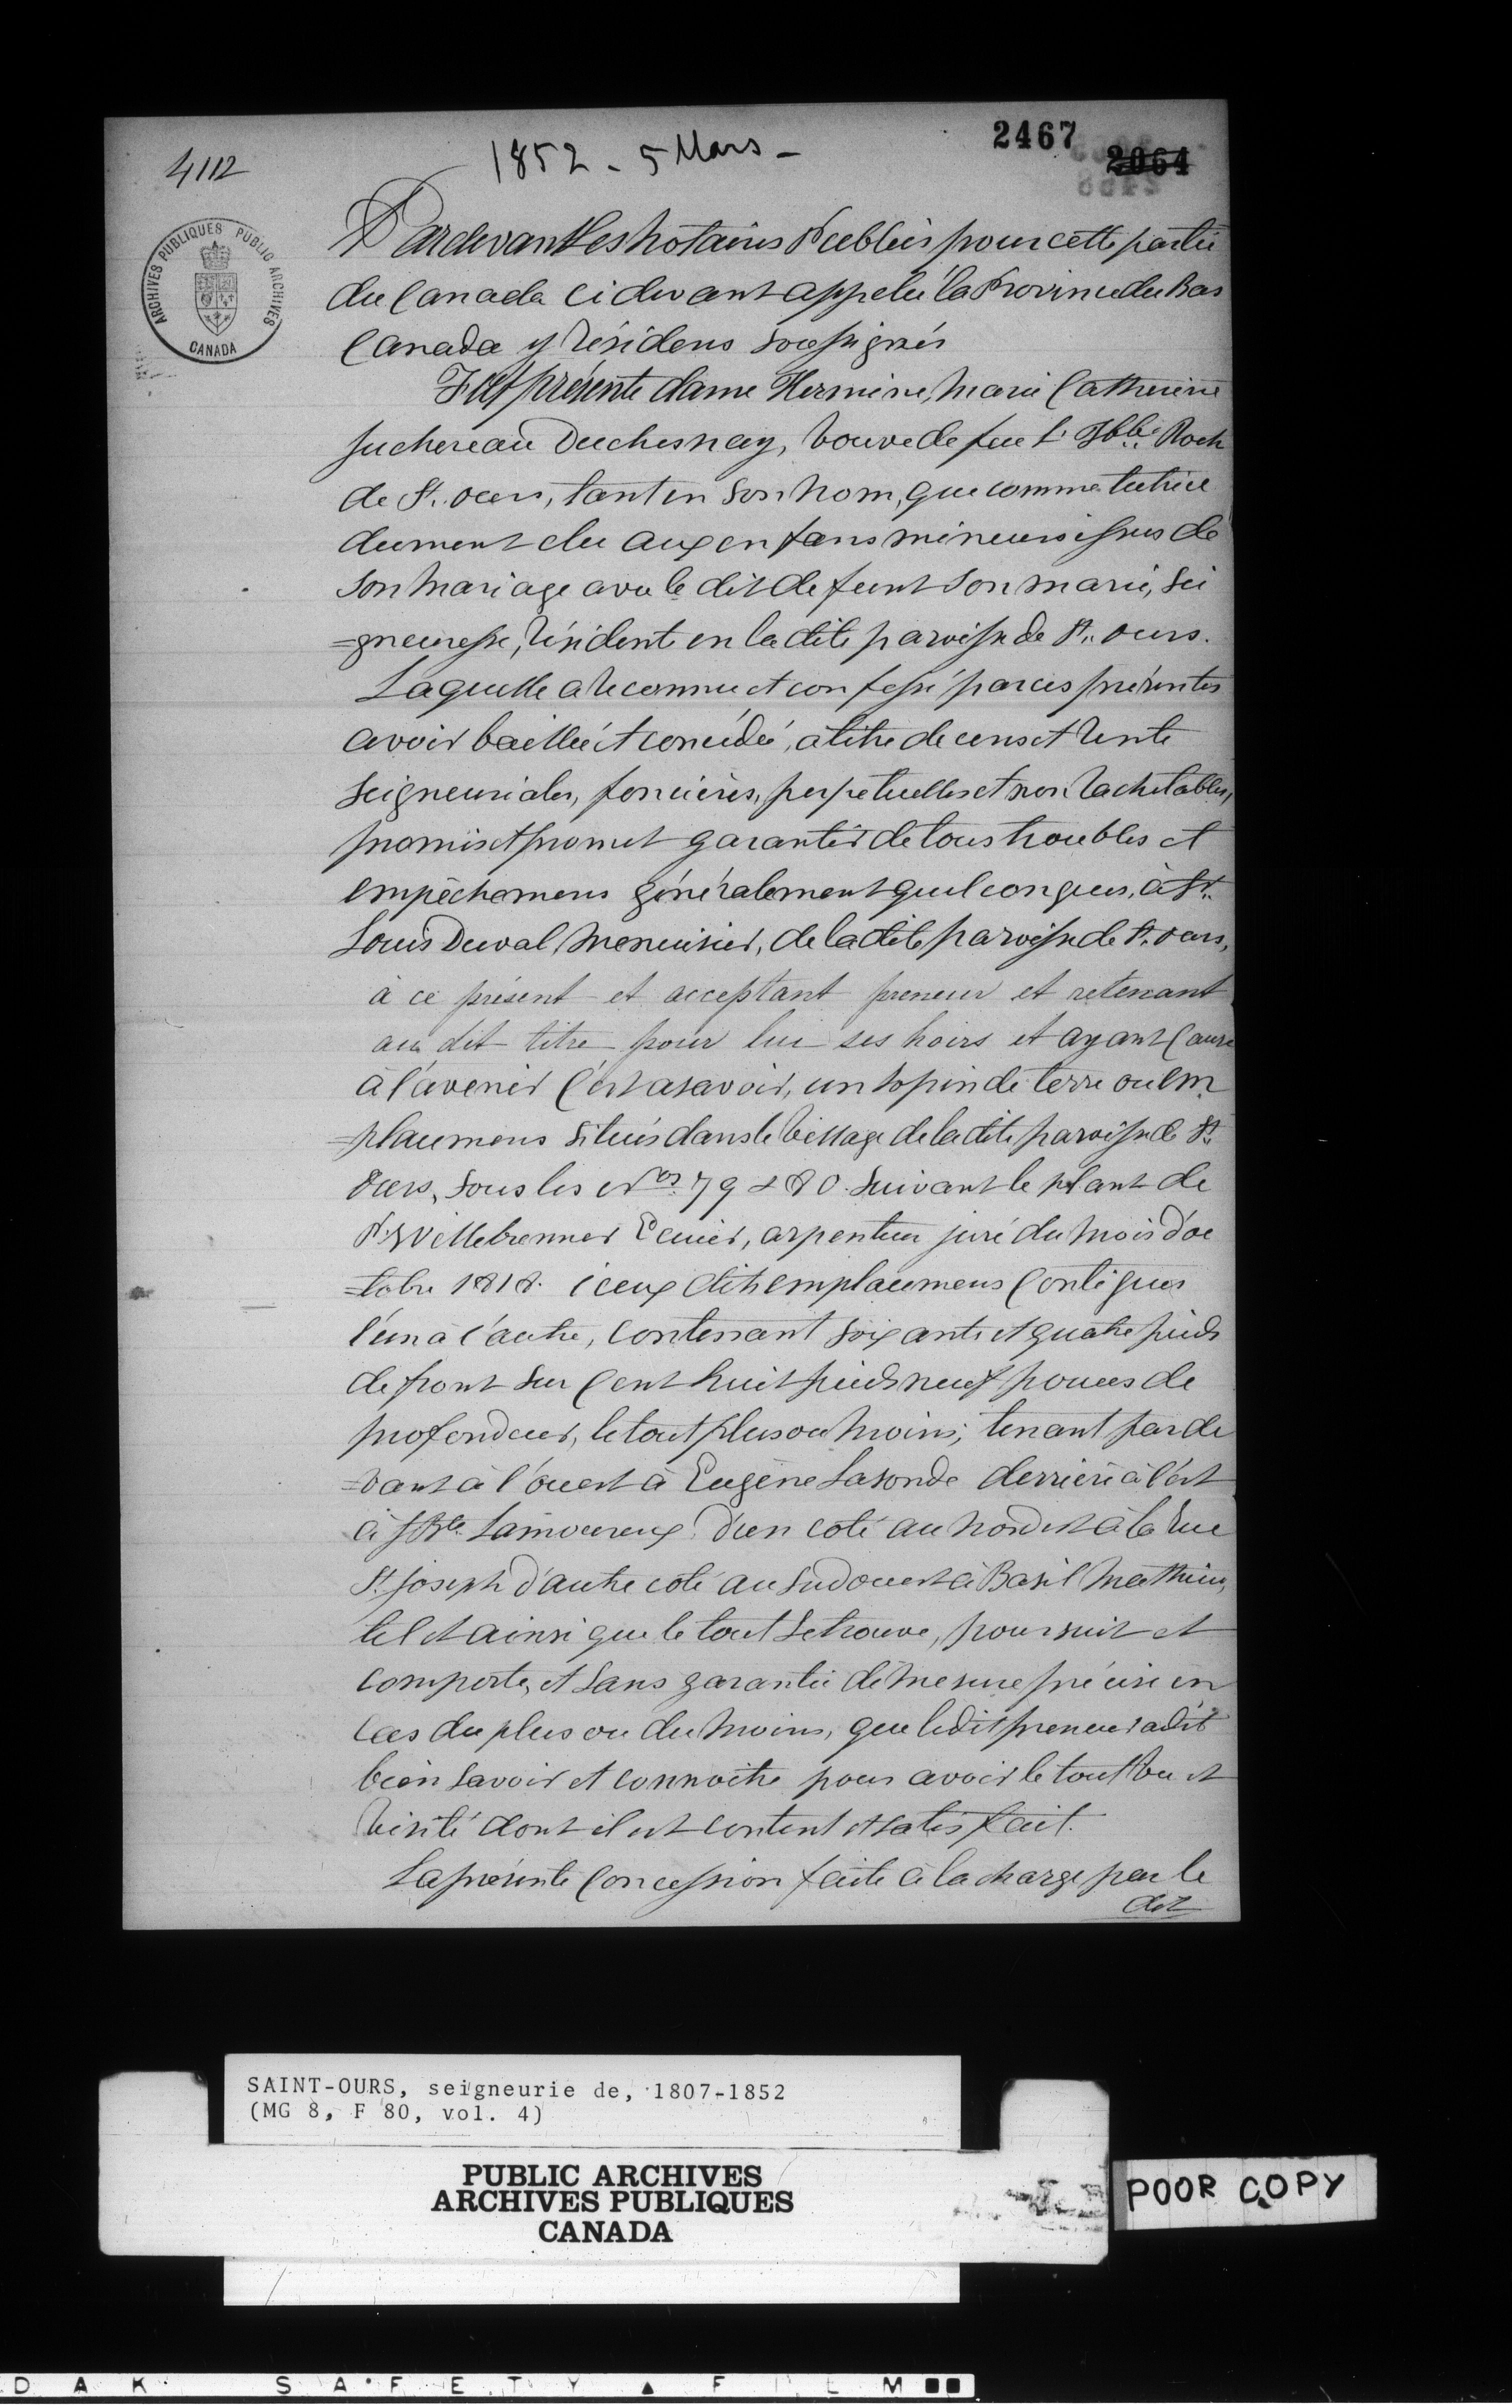 4112
1852 - 5 Mars -
2467
2064
ARCHIVES PUBLIQUES PUBLIC ARCHIVES
CANADA
Pardevant les notaires Publics pour cette partie
du Canada ci devant appelée la Province du Bas
Canada y résidens soussignés
Fut présente dame Hermine, Marie Catherine
Juchereau Duchesnay, Veuve de feu Frs. Roch
de St. Ours, tant en son nom, que comme tutrice
dument elu aux enfans mineurs issus de
son mariage avec le dit defunt son mari, Sei
=gneuresse, résidente en la dite paroisse de St. Ours.
Laquelle a reconnu et confessé par ces présentes
avoir baillé et concédé, à titre de cens et rente
seigneuriales, foncières, perpetuelles et non rachetables,
promis et promet garantir de tous troubles et
empêchemens généralement quelconques, à Sr.
Louis Duval, Menuisier, de la dite paroisse de St. Ours,
à ce présent et acceptant preneur et retenant
au dit titre pour lui ses hoirs et ayant cause
à l'avenir C'est asavoir, un lopin de terre ou em
=placemens situés dans le village de la dite paroisse de St.
Ours, sous les Nos. 79 & 80. suivant le plant de
Ecuier, arpenteur juré du mois d'oc
=tobre 1818. iceux dits emplacemens contigues
l'un à l'autre, contenant soixante et quatre pieds
de front sur cent huit pieds neuf pouces de
profondeur, le tout plus ou moins; tenant par de
=vant à l'ouest à Eugène Lasonde derrière à l'est
à Lamoureux d'un coté au nord est à la rue
St. Joseph d'autre coté au sud ouest à Basil Mathieu,
tel et ainsi que le tout se trouve, poursuit et
comporte, et sans garantie de mesure précise en
cas du plus ou du moins, que le dit preneur a dit
bien savoir et connoitre pour avoir le tout vu et
visité dont il est content et satisfait.
La présente concession faite à la charge par le
dit
SAINT-OURS, seigneurie de, 1807-1852
(MG 8, F 80, vol. 4)
PUBLIC ARCHIVES
ARCHIVES PUBLIQUES
CANADA
POOR COPY
DAK SAFETY FILM